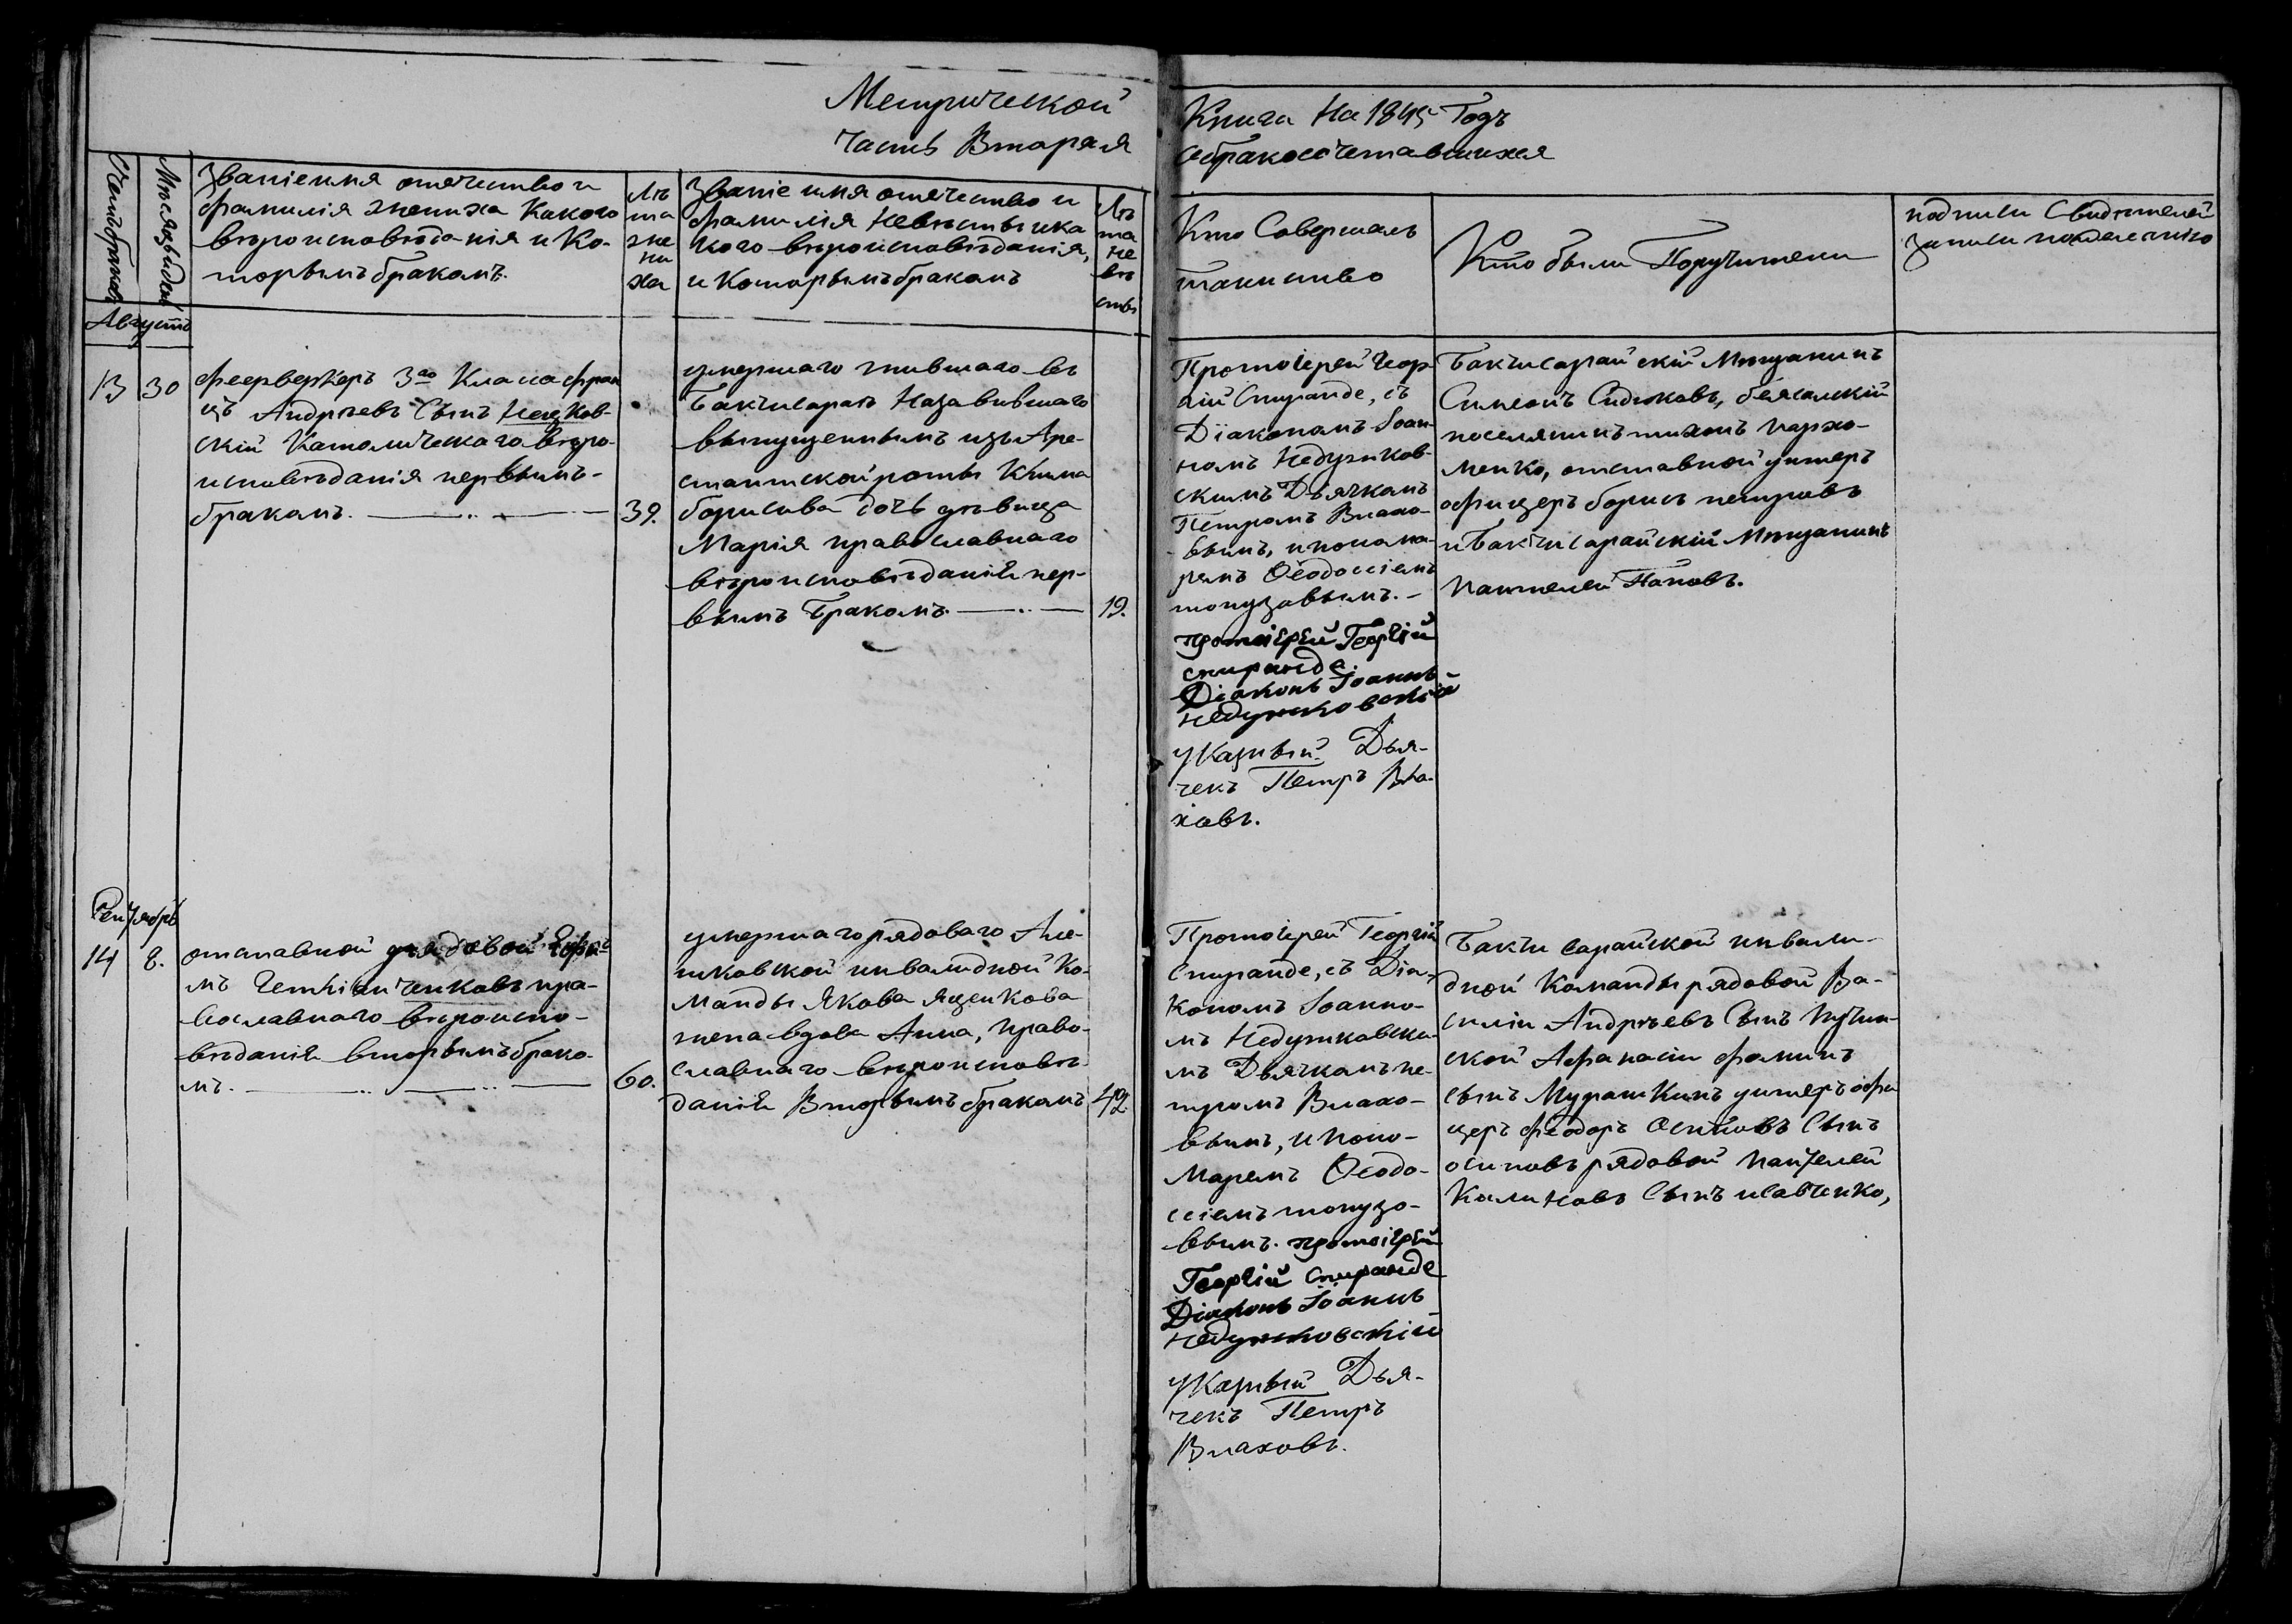 Метрической
Часть Вторая
Книга На 1845 Годъ
о бракосочетавшихся
Счетъ браковъ
Мѣсяцъ и день
Званіе имя отечество и
фамилія жениха Какого
вѣроисповѣданія и Ко-
торымъ бракомъ.
Лѣ
та
же
ни
ха
Званіе имя отечество и
фамилія Невѣсты и ка
кого вѣроисповѣданія,
и Которымъ бракомъ
Лѣ
та
не
вѣ
сты
Кто Совершалъ
таинство
Кто были Поручители
подписи Свидѣтелей
записи
Августъ
13
30
феерверкеръ 3го Класа фран
цъ Андрѣевъ Сынъ
скій Католическаго вѣро-
исповѣданія первымъ-
бракомъ.
39.
умершаго жившаго въ
Бакчисараѣ Назавившаго
выпущеннымъ изъ Аре-
стантской роты Клима
борисова дочь дѣвица
Марія православнаго
вѣроисповѣданія пер-
вымъ Бракомъ.
19.
Протоіерей Геор
гій Спиранде, съ
Діакономъ Іоан-
номъ Недужков-
скимъ Дьячкомъ
Петромъ Влахо-
вымъ, и понома-
ремъ Ѳеодосіемъ
топузовымъ.
протоіерей Георгій
спиранде
Діаконъ Іоаннъ
недужковскій
указный Дья-
чекъ Петръ Вла-
ховъ.
Бакчисарайскій Мѣщанинъ
Симеонъ Сидоковъ,
поселянинъ тихонъ пархо-
менко, отставной унтеръ
офицеръ борисъ петровъ
и Бакчисарайскій Мѣщанинъ
пантелей Поповъ.
Сентябрь
14
8.
отставной рядовой Ефи-
мъ пра-
вославнаго вѣроиспо-
вѣданія вторымъ брако-
мъ.
60.
умершаго рядоваго Але-
шковской инвалидной Ко-
манды Якова Яценкова
жена вдова Анна, право-
славнаго вѣроисповѣ-
данія Вторымъ бракомъ
42
Протоіерей Георгій
Спиранде, съ Діа-
кономъ Іоанно-
мъ Недужковски-
мъ Дьячкомъ пе-
тромъ Влахо-
вымъ, и поно-
Маремъ Ѳеодо-
сіемъ топузо-
вымъ. протоіерей
Георгій Спиранде
Діаконъ Іоаннъ
недужковскій
указный Дья-
чекъ Петръ
Влаховъ.
Бакчисарайской инвали-
дной Команды рядовой Ва-
силій Андрѣевъ Сынъ
ской Афанасій фоминъ
сынъ Мурашкинъ унтеръ офи
церъ феодоръ Осиповъ Сынъ
осиповъ рядовой пантелей
Сынъ исавченко,